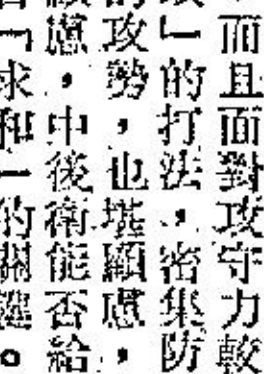 而且面對攻守力較
」的打法，密集防
的攻勢，也堪顧慮，
慮，中後衛能否給
「求和」的關鍵。